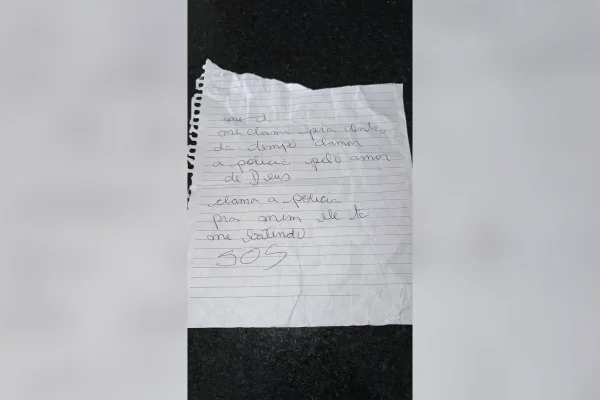 me d
me chama pra dentro
da tempo chamar
a policia pelo amor
de Deus
chama a policia
pra mim ele ta
me batendo
SOS